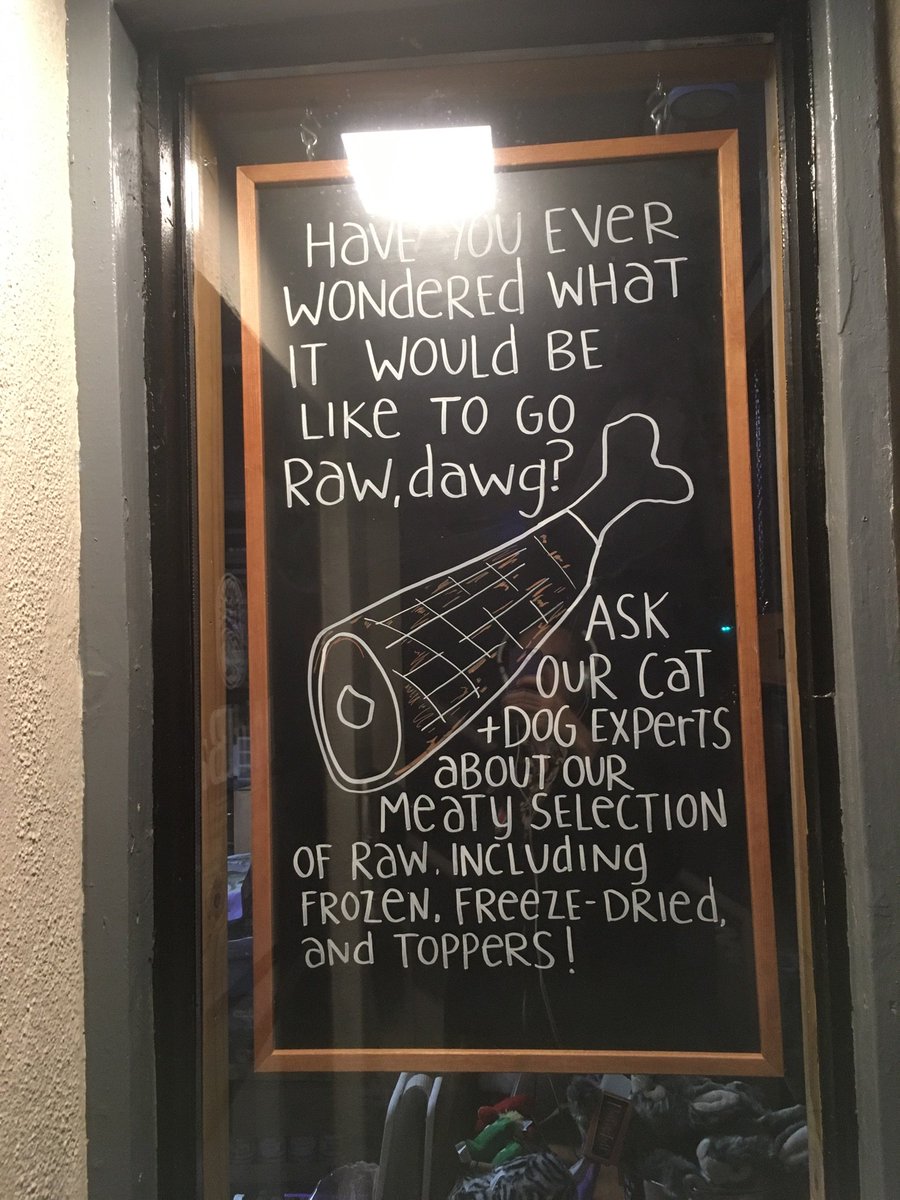 Have you ever
wondered what
it would be
like to go
raw, dawg?
Ask
our cat
+dog experts
about our
meaty selection
of raw, including
frozen, freeze-dried,
and toppers!